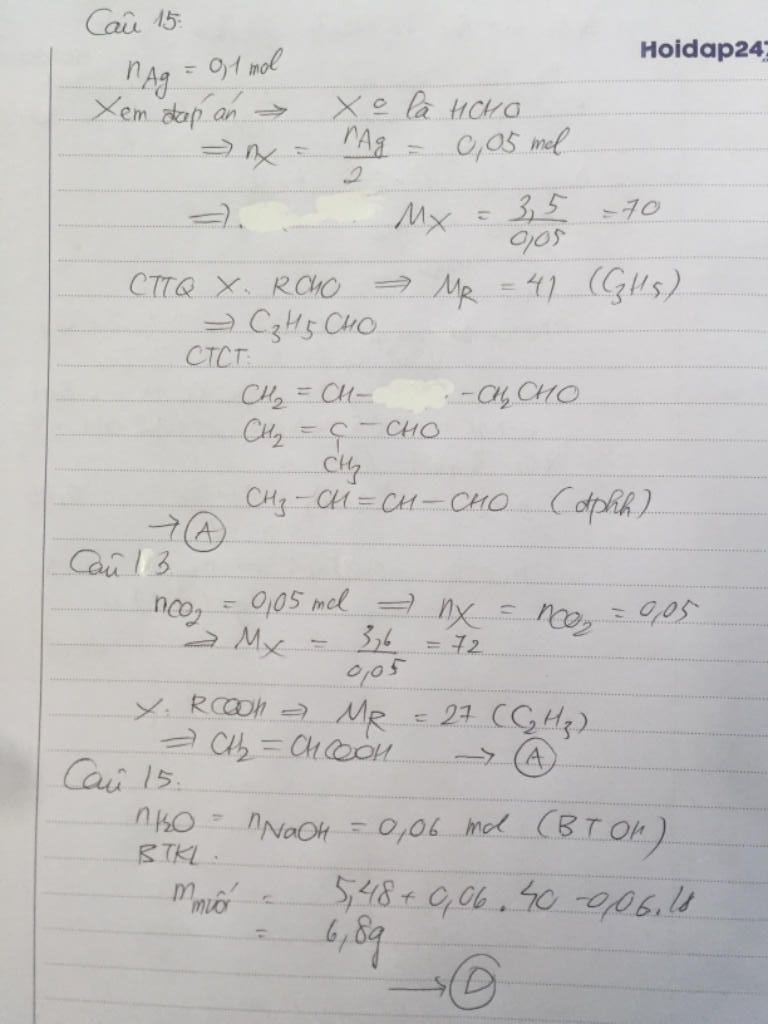 Câu 15:
Hoidap247
nAg = 0,1 mol
Xem đáp án ⇒ X o là HCHO
⇒ nX = nAg/2 = 0,05 mol
⇒ MX = 3,5/0,05 = 70
CTTQ X: RCHO ⇒ MR = 41 (C3H5)
⇒ C3H5CHO
CTCT:
CH2 = CH- -CH2CHO
CH2 = C - CHO
CH3
CH3 - CH = CH - CHO (đphh)
→ A
Câu 13
nCO2 = 0,05 mol ⇒ nX = nCO2 = 0,05
⇒ MX = 3,6/0,05 = 72
X: RCOOH ⇒ MR = 27 (C2H3)
⇒ CH2 = CHCOOH → A
Câu 15:
nH2O = nNaOH = 0,06 mol (BT OH)
BTKL:
mmuối = 5,48 + 0,06 . 40 - 0,06 . 18
= 6,8g
→ D